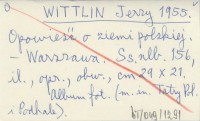 WITTLIN Jerzy 1955.
Opowieść o ziemi polskiej.
- Warszawa. Ss. nlb. 156,
il., opr., obw., cm 29 x 21.
Album fot. (m. in. Tatry Pol.
i Podhale).